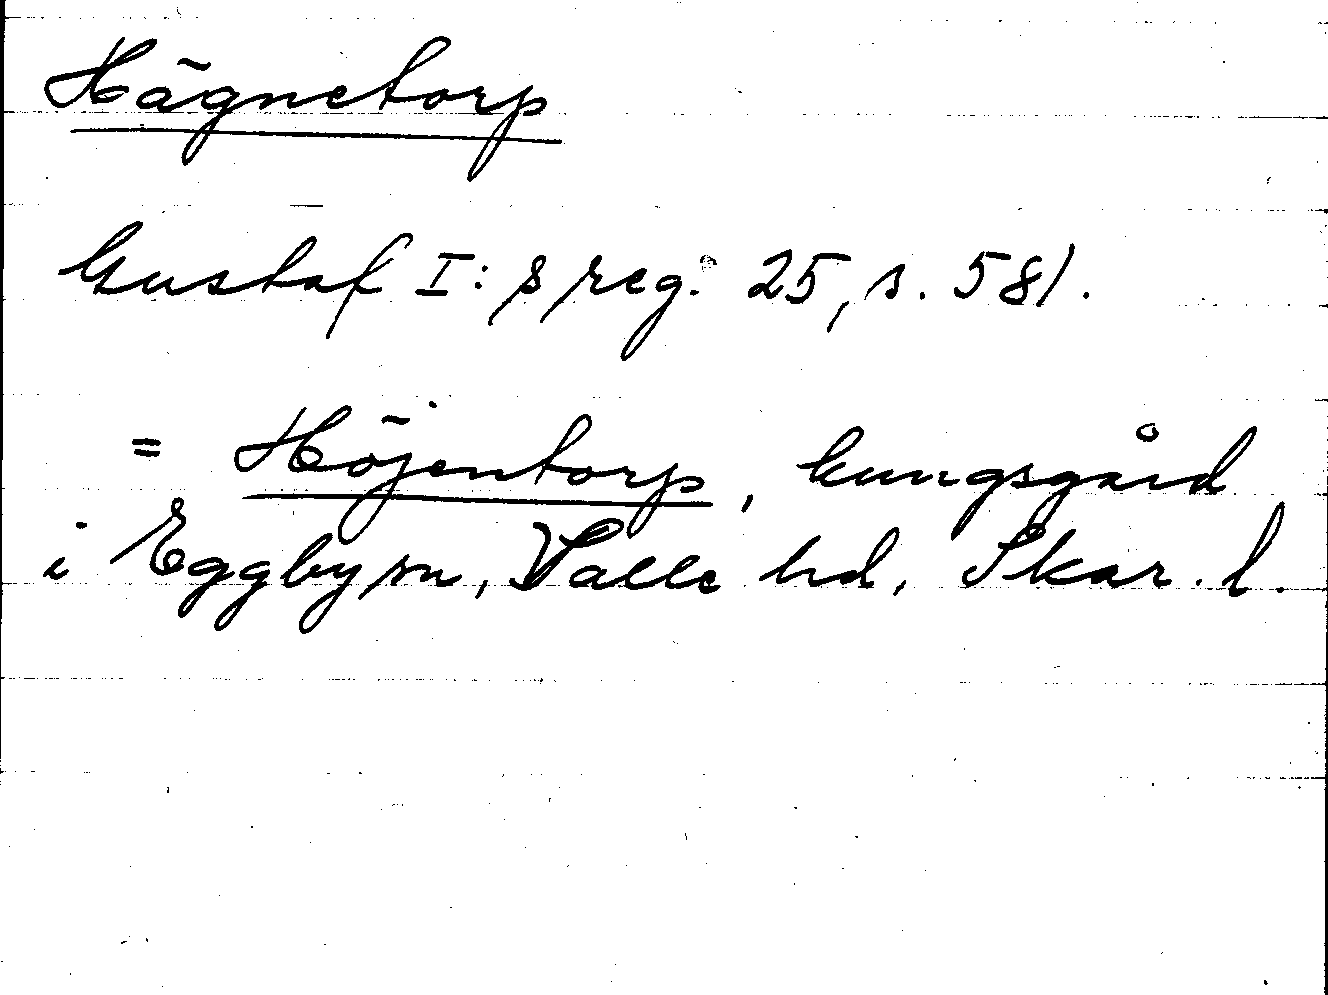 Hägnetorp
Gustaf I:s reg. 25, s. 581.
= Höjentorp, kungsgård
i Eggby sn, Valle hd, Skar. l.